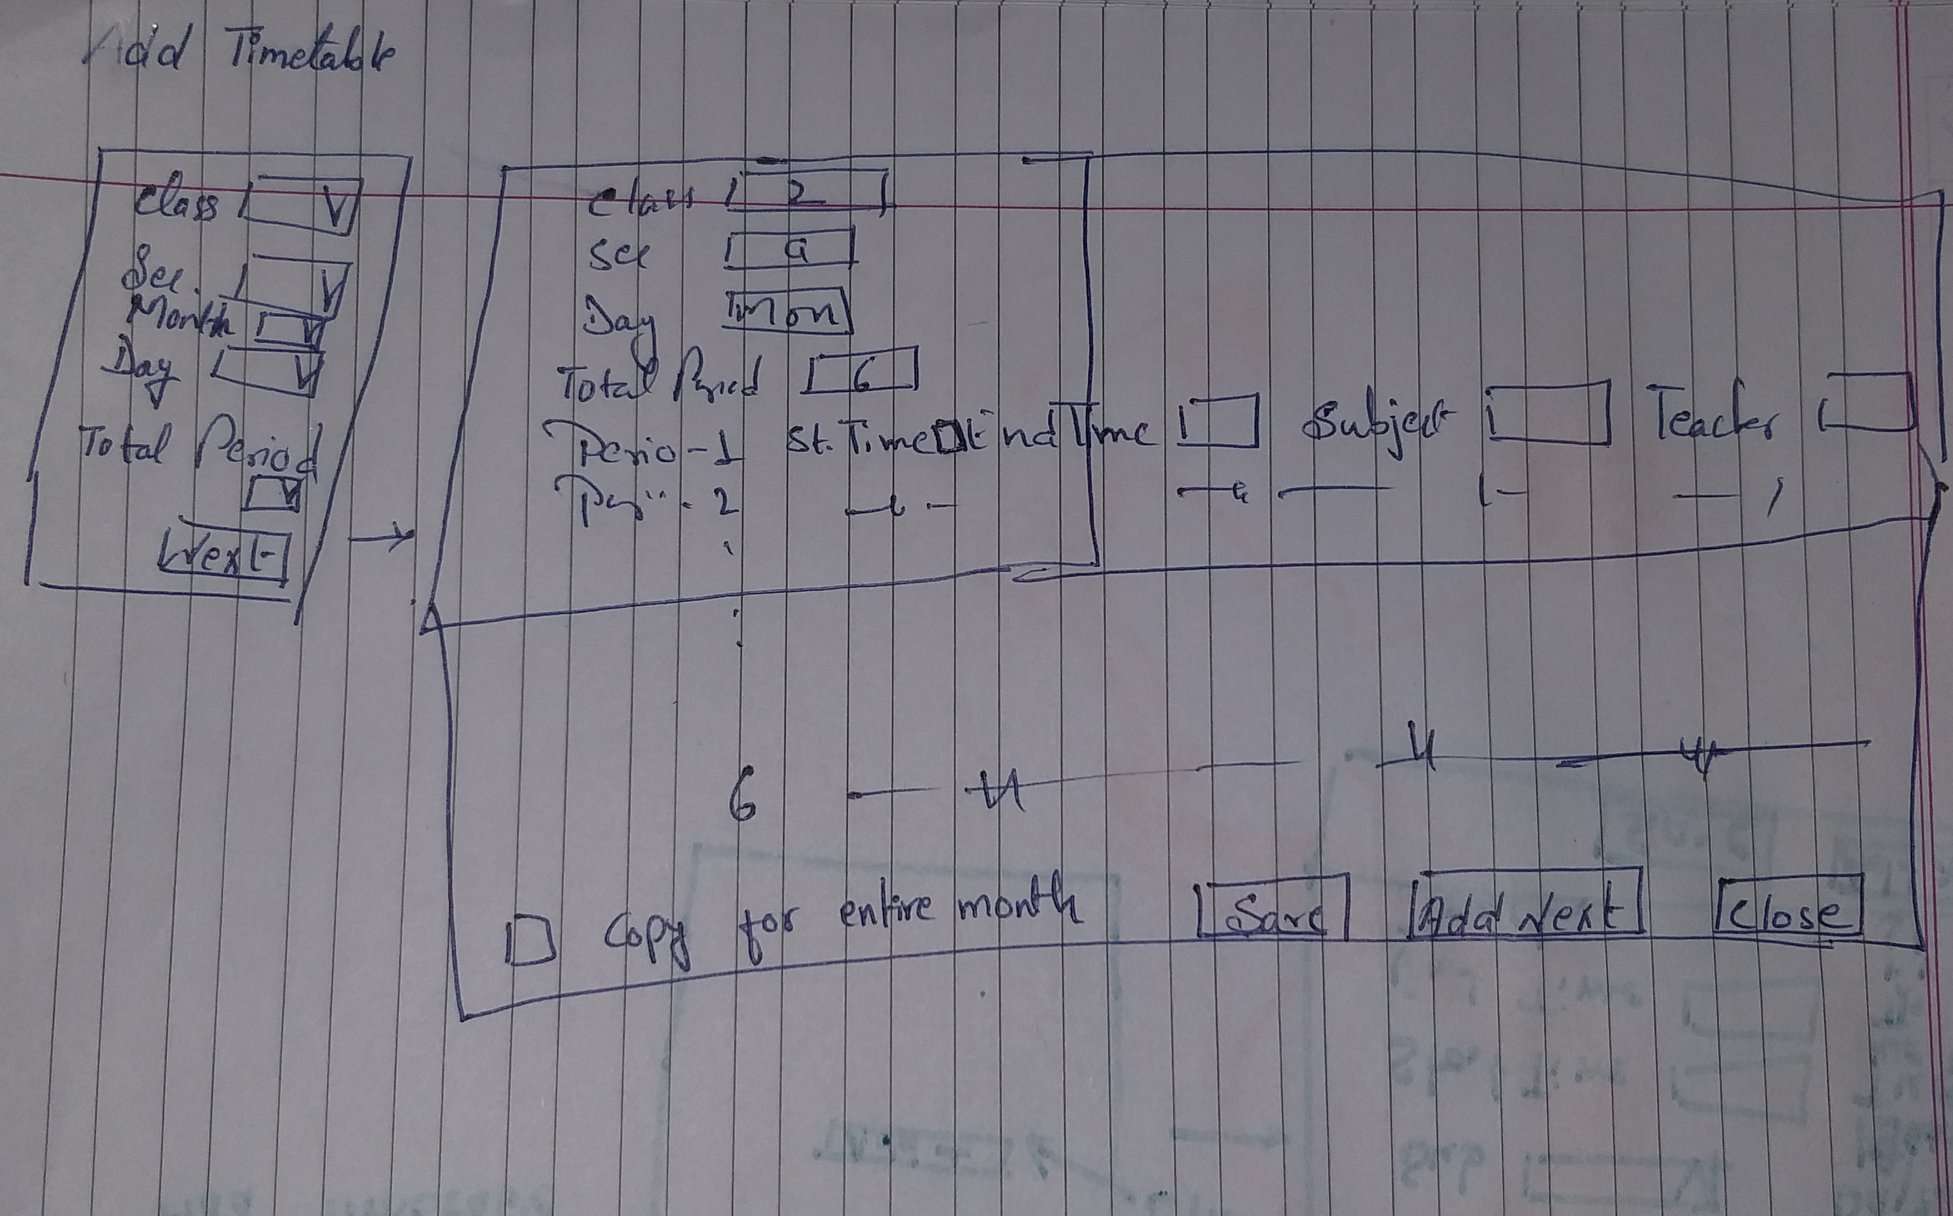 Add Timetable
Class
Sec.
Month
Day
Total Period
Next
Class 2
sec a
Day Mon
Total Period 6
Perio-1 St. Time End Time Subject Teacher
2
6
Copy for entire month Save Add Next Close